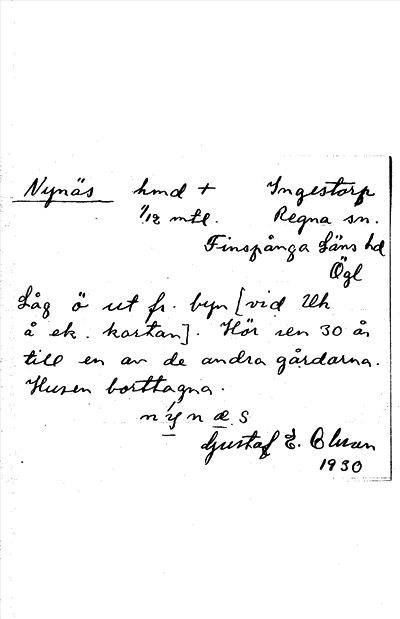 Nynäs hmd + Ingestorp
1/12 mtl. Regna sn.
Finspånga Läns hd
Ögl
Låg ö ut fr. byn [vid Uh
å ek. kartan]. Hör sen 30 år
till en av de andra gårdarna.
Husen borttagna.
n ý n æ. s
Gustaf E. Olsson
1930